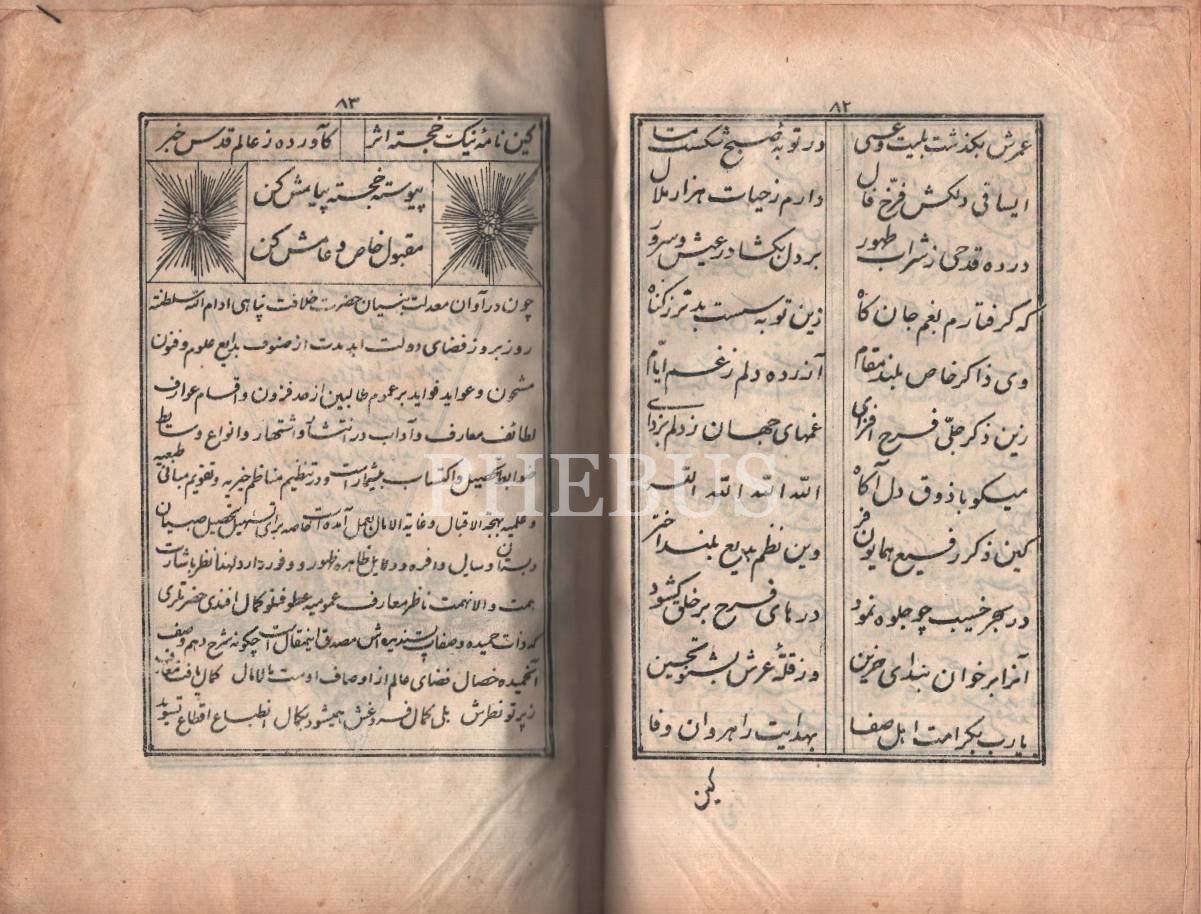 ۸۲
عمرش بگذشت بلیت وعسی در توبه صبح شکست
ایساقی دلکش فرخ فال دارم زحیات هزار ملال
درده قدحی ز شراب طهور بر دل بگشا در عیش و سرور
که گرفتارم بغم جان کاه زین توبه سست بدتر زگناه
وی ذاکر خاص بلند مقام آزرده دلم زغم ایام
زین ذکر جلی فرح افزای غمهای جهان زدلم بزدای
میکو با ذوق دل آگاه الله الله الله الله
کین ذکر رفیع همایون فر وین نظم بدیع بلند اختر
در بحر خبب چو جلوه نمود درهای فرح بر خلق گشود
آنرا برخوان بندای حزین وز قلهٔ عرش بشنو تحسین
یارب بکرامت اهل صفا بهدایت راهروان وفا
کین
۸۳
کین نامهٔ نیک خجسته اثر کاورده ز عالم قدس خبر
پیوسته خجسته پیامش کن
مقبول خاص و عامش کن
چون در آوان معدلت بنیان حضرت خلافت پناهی ادام الله سلطنته
روز بروز فضای دولت ابد مدت از صنوف بدایع علوم و فنون
مشحون و عواید فواید بر عموم طالبین از حد فزون و اقسام عوارف
لطائف معارف و آداب در انتشار و اشتهار و انواع وسایط
تحصیل و اکتساب بیشمار است و در تنظیم مناظم خیریه و تقویم مبانی
و علمیه بهجة الاقبال و غایة الامال بعمل آمده است خاصه برای تسهیل تحصیل صبیان
دبستان وسایل وافره و دلایل ظاهره ظهور و وفور دارد لهذا نظر باشارت
همت والانهمت ناظر معارف عمومیه عطوفتلو کمال افندی حضرتلری
که ذات حمیده و صفات پسندیده اش مصدق اینمقال است چگونه شرح دهم وصف
آنحمیده خصال فضای عالم از اوصاف اوست مالامال کمال یافت معارف
زپرتو نظرش بلی کمال همیشود بکمال انطباع